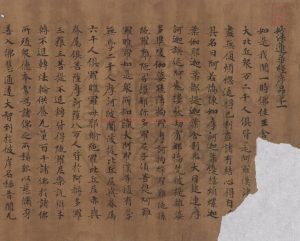 妙法蓮華經序品第一
如是我聞一時佛住王舍
大比丘眾万二千人俱皆是阿羅漢諸
盡無復煩惱逮得己利盡諸有結心得自
其名曰阿若憍陳如摩訶迦葉優樓頻螺迦
葉伽耶迦葉那提迦葉舍利弗大目揵連摩
訶迦旃延阿㝹樓馱劫賓那憍梵波提離婆
多畢陵伽婆蹉薄拘羅摩訶拘絺羅難陀孫陀
羅難陀富樓那彌多羅尼子須菩提阿難
羅睺羅如是眾所知識大阿羅漢等復有學
無學二千人摩訶波闍波提比丘尼與眷屬
六千人俱羅睺羅母耶輸陀羅比丘尼亦與
眷屬俱菩薩摩訶薩八万人皆於阿耨多羅
三藐三菩提不退轉皆得陀羅尼樂說辯才
轉不退轉法輪供養无量百千諸佛於諸佛
所殖眾德本常為諸佛之所稱歎以慈修身
善入佛慧通達大智到於彼岸名稱普聞无